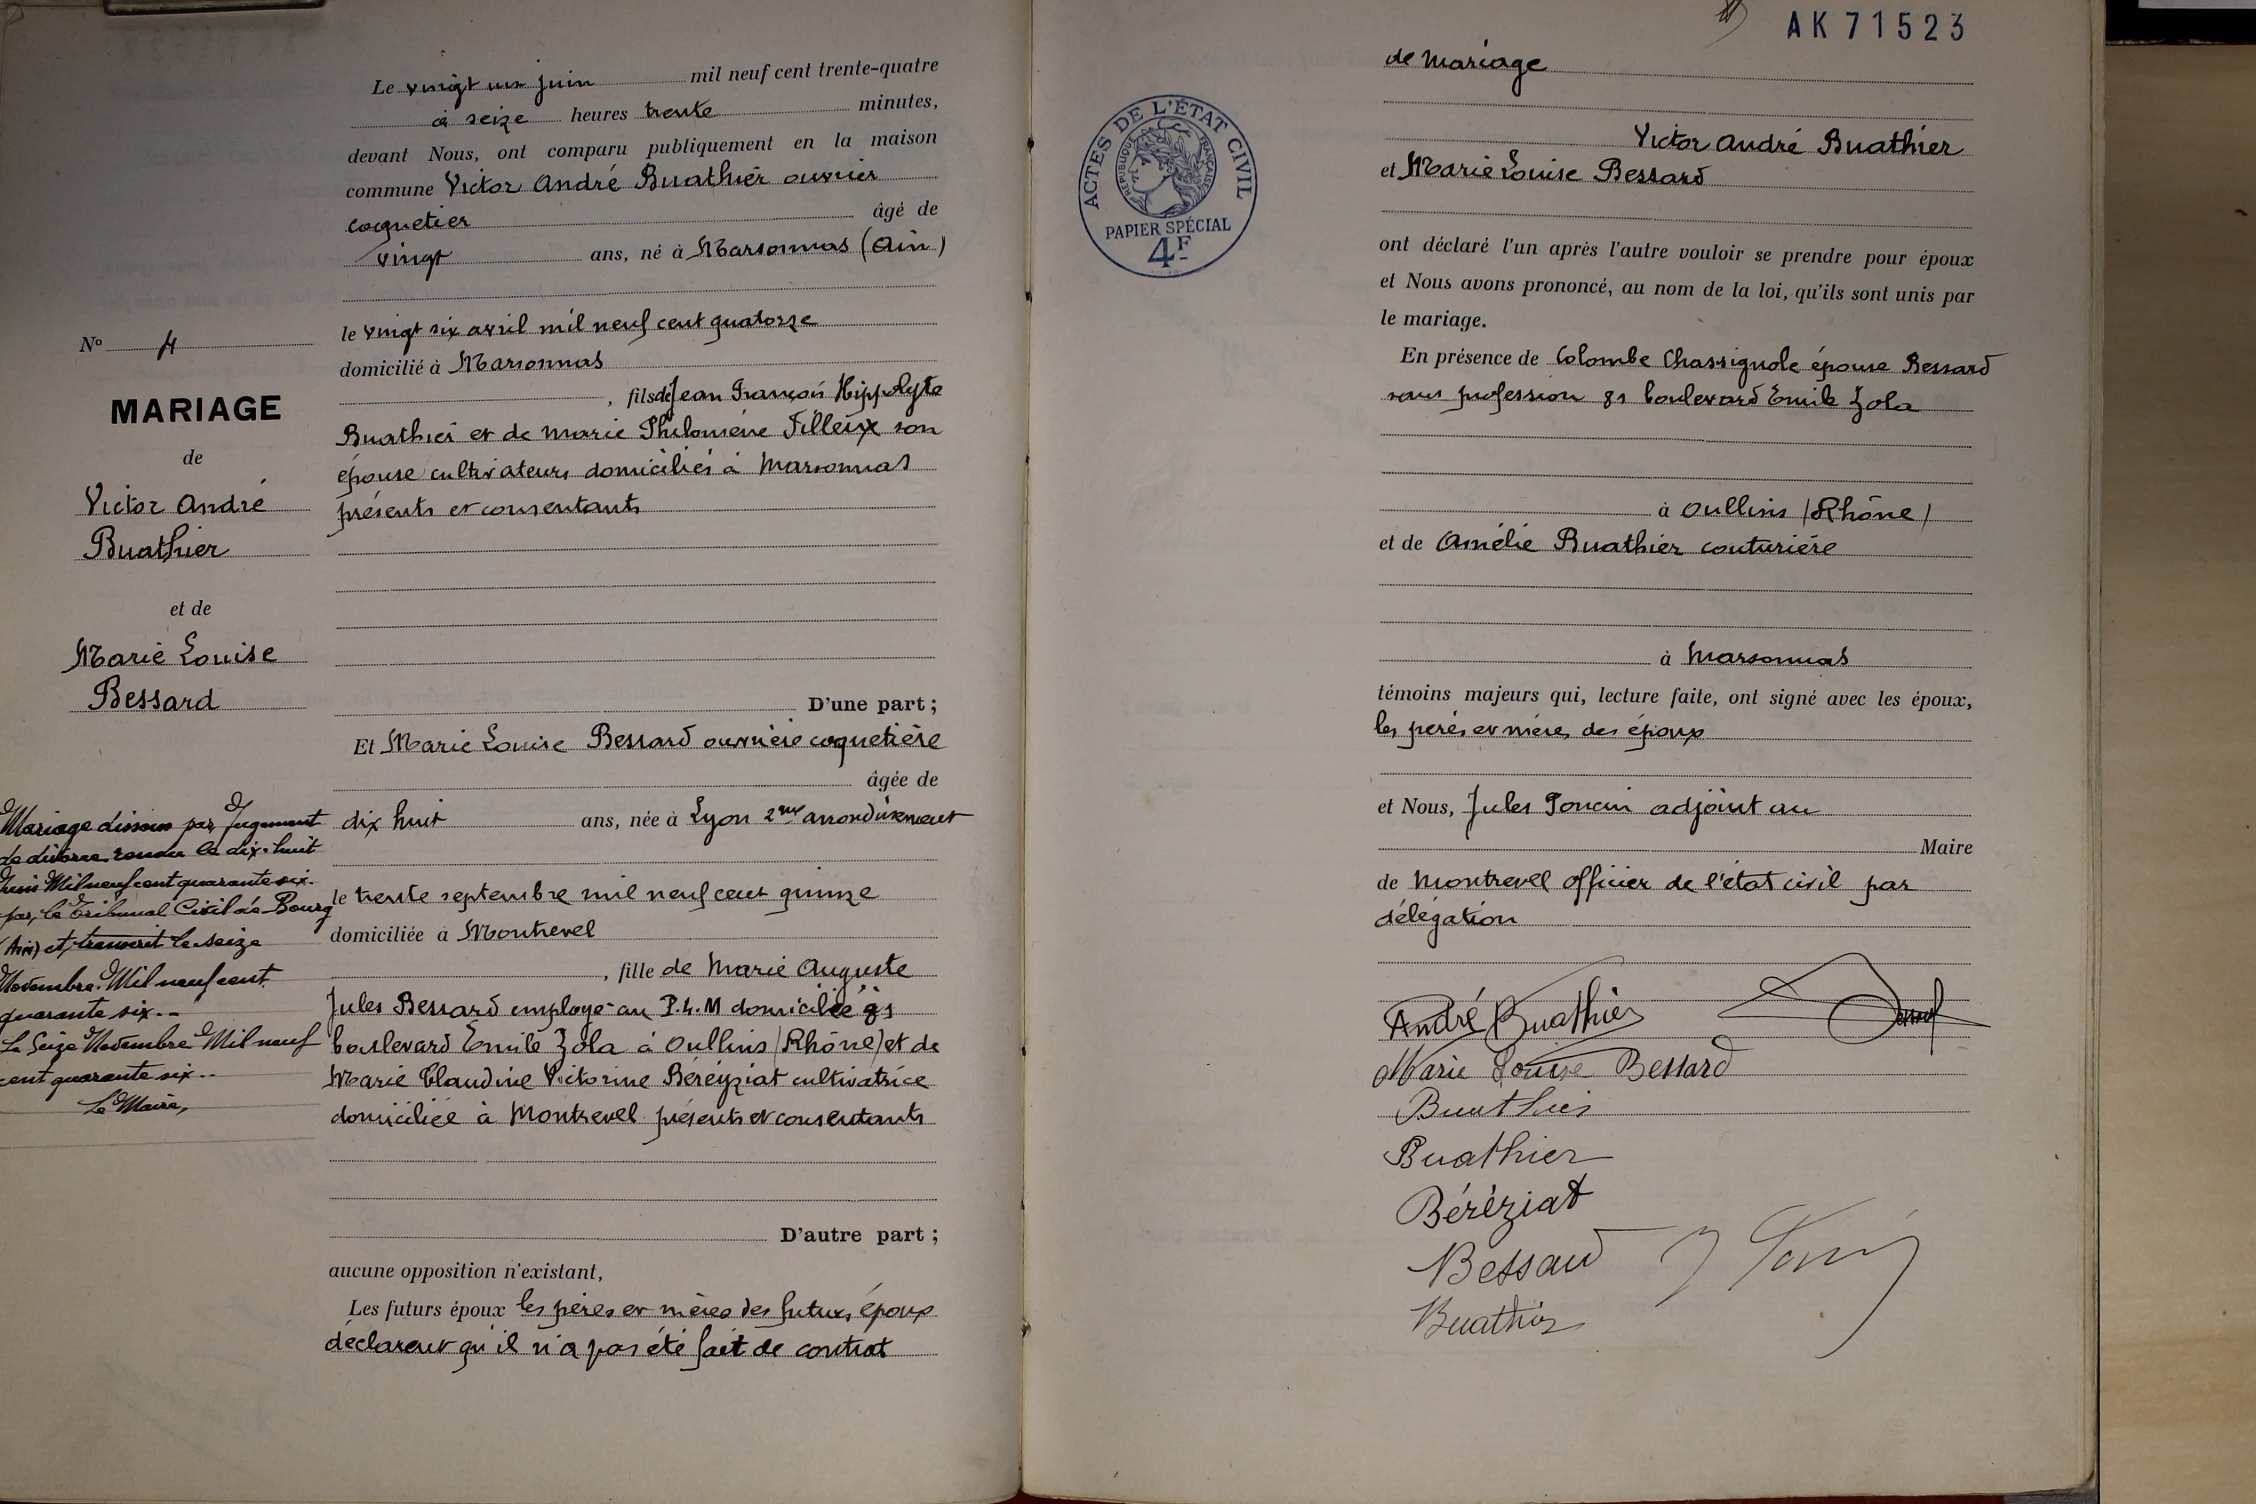 Le vingt un juin mil neuf cent trente-quatre
à seize heures trente minutes,
devant Nous, ont comparu publiquement en la maison
commune Victor André Buathier ouvrier
coquetier âgé de
vingt ans, né à Marsonnas (Ain)
le vingt six avril mil neuf cent quatorze
domicilié à Marsonnas
, fils de Jean François Hippolyte
Buathier et de Marie Philomène Filleux son
épouse cultivateurs domiciliés à Marsonnas
présents et consentants
D'une part ;
Et Marie Louise Bessard ouvrière coquetière
âgée de
dix huit ans, née à Lyon 2me arrondissement
le trente septembre mil neuf cent quinze
domiciliée à Montrevel
, fille de Marie Auguste
Jules Bessard employé au P.L.M domicilié 81
boulevard Emile Zola à Oullins (Rhône) et de
Marie Claudine Victorine Béréyziat cultivatrice
domiciliée à Montrevel présents et consentants
D'autre part ;
aucune opposition n'existant,
Les futurs époux les pères et mères des futurs époux
déclarent qu'il n'a pas été fait de contrat
N° 4
MARIAGE
de
Victor André
Buathier
et de
Marie Louise
Bessard
Mariage dissous par Jugement
de divorce rendu le dix-huit
Juin Mil neuf cent quarante six.
par le Tribunal Civil de Bourg
(Ain) et transcrit le seize
Novembre Mil neuf cent
quarante six.--
Le Seize Novembre Mil neuf
cent quarante six..
Le Maire,
AK 71523
de mariage
Victor André Buathier
et Marie Louise Bessard
ont déclaré l'un après l'autre vouloir se prendre pour époux
et Nous avons prononcé, au nom de la loi, qu'ils sont unis par
le mariage.
En présence de Colombe Chassignole épouse Bessard
sans profession 81 boulevard Emile Zola
à Oullins (Rhône)
et de Amélie Buathier couturière
à Marsonnas
témoins majeurs qui, lecture faite, ont signé avec les époux,
les pères et mères des époux
et Nous, Jules Poncin adjoint au
Maire
de Montrevel officier de l'état civil par
délégation
André Buathier
Marie Louise Bessard
Buathier
Buathier
Béréziat
Bessard
Buathier
ACTES DE L'ÉTAT CIVIL
RÉPUBLIQUE FRANÇAISE
PAPIER SPÉCIAL
4F